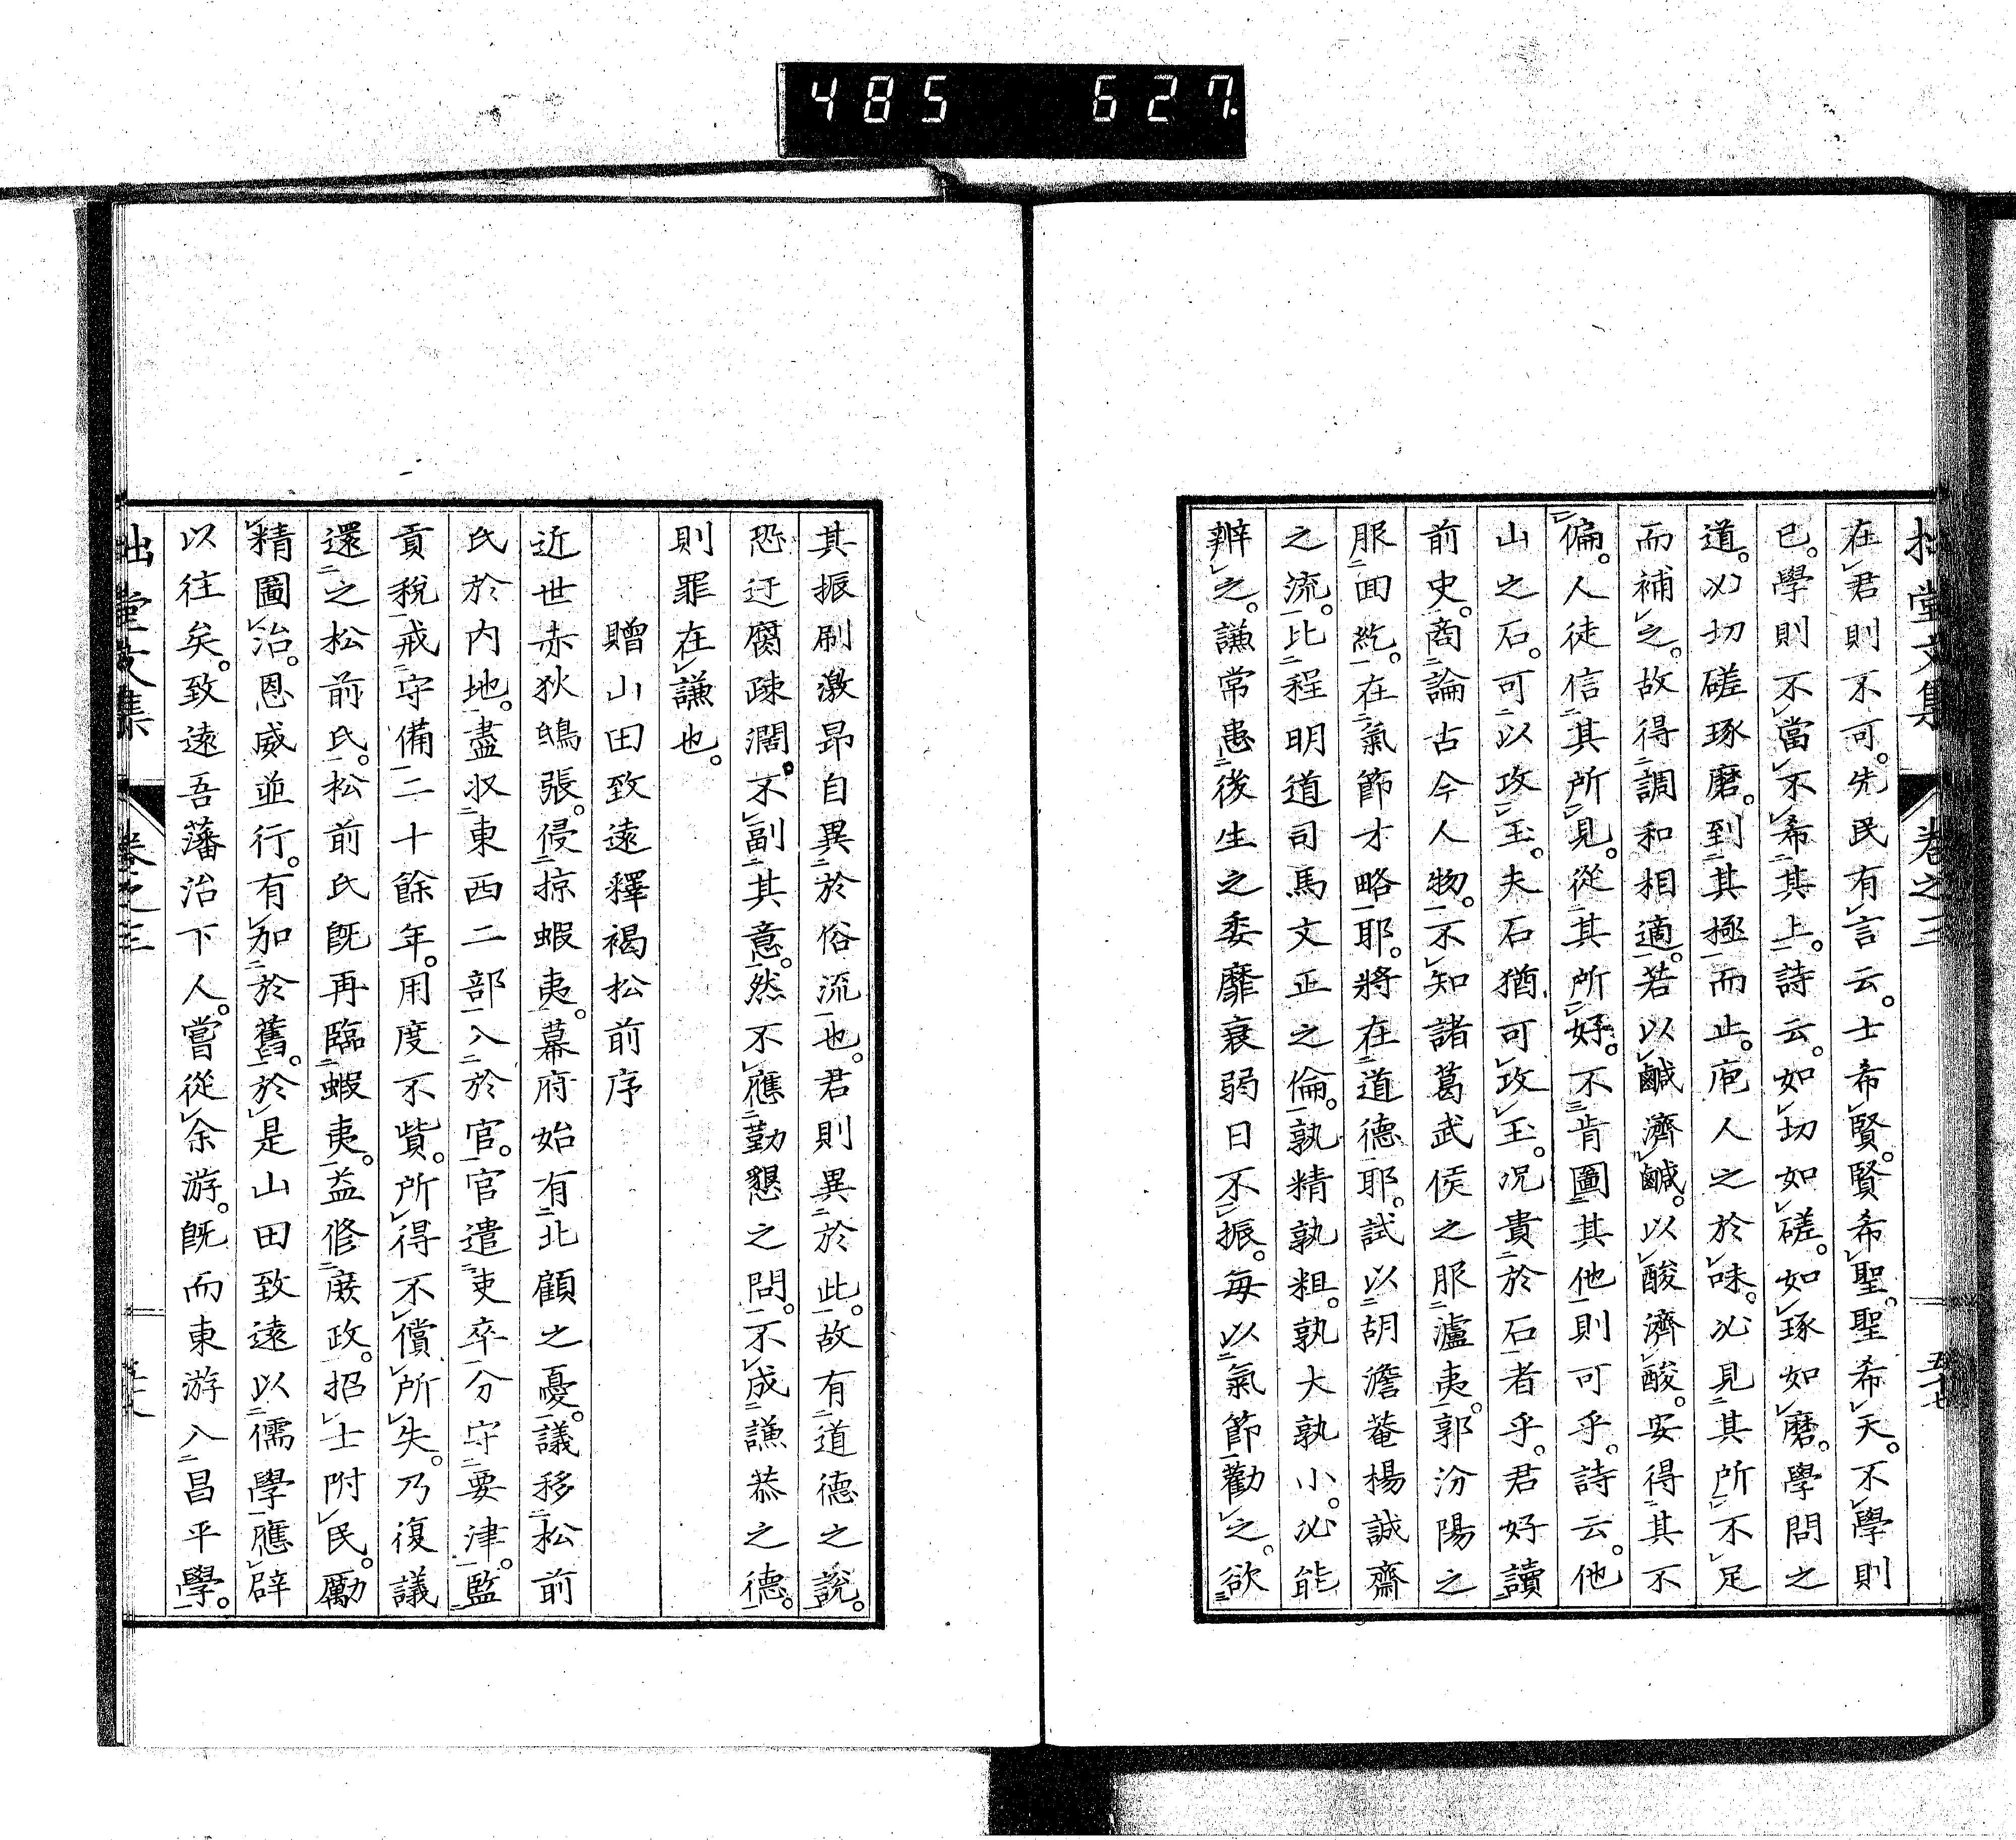 485 627
在君則不可。先民有言云。士希賢。賢希聖。聖希天。不學則
已。學則不當不希其上。詩云。如切如磋。如琢如磨。學問之
道。必切磋琢磨。到其極而止。庖人之於味。必見其所不足
而補之。故得調和相適。若以鹹濟鹹。以酸濟酸。安得其不
偏。人徒信其所見。從其所好。不肯圖其他則可乎。詩云。他
山之石。可以攻玉。夫石猶可攻玉。況貴於石者乎。君好讀
前史。商論古今人物。不知諸葛武侯之服瀘夷。郭汾陽之
服回紇。在氣節才略耶。將在道德耶。試以胡澹菴楊誠齋
之流。比程明道司馬文正之倫。孰精孰粗。孰大孰小。必能
辨之。謙常患後生之委靡衰弱日不振。每以氣節勸之。欲
其振刷激昂自異於俗流也。君則異於此。故有道德之說。
恐迂腐疎濶。不副其意。然不應勤懇之問。不成謙恭之德。
則罪在謙也。
贈山田致遠釋褐松前序
近世赤狄鴟張。侵掠蝦夷。幕府始有北顧之憂。議移松前
氏於内地。盡収東西二部入於官。官遣吏卒分守要津。監
貢稅戒守備二十餘年。用度不貲。所得不償所失。乃復議
還之松前氏。松前氏既再臨蝦夷。益修廢政。招士附民。勵
精圖治。恩威並行。有加於舊。於是山田致遠以儒學應辟
以往矣。致遠吾藩治下人。嘗從余游。既而東游入昌平學。
拙堂文集 卷之三